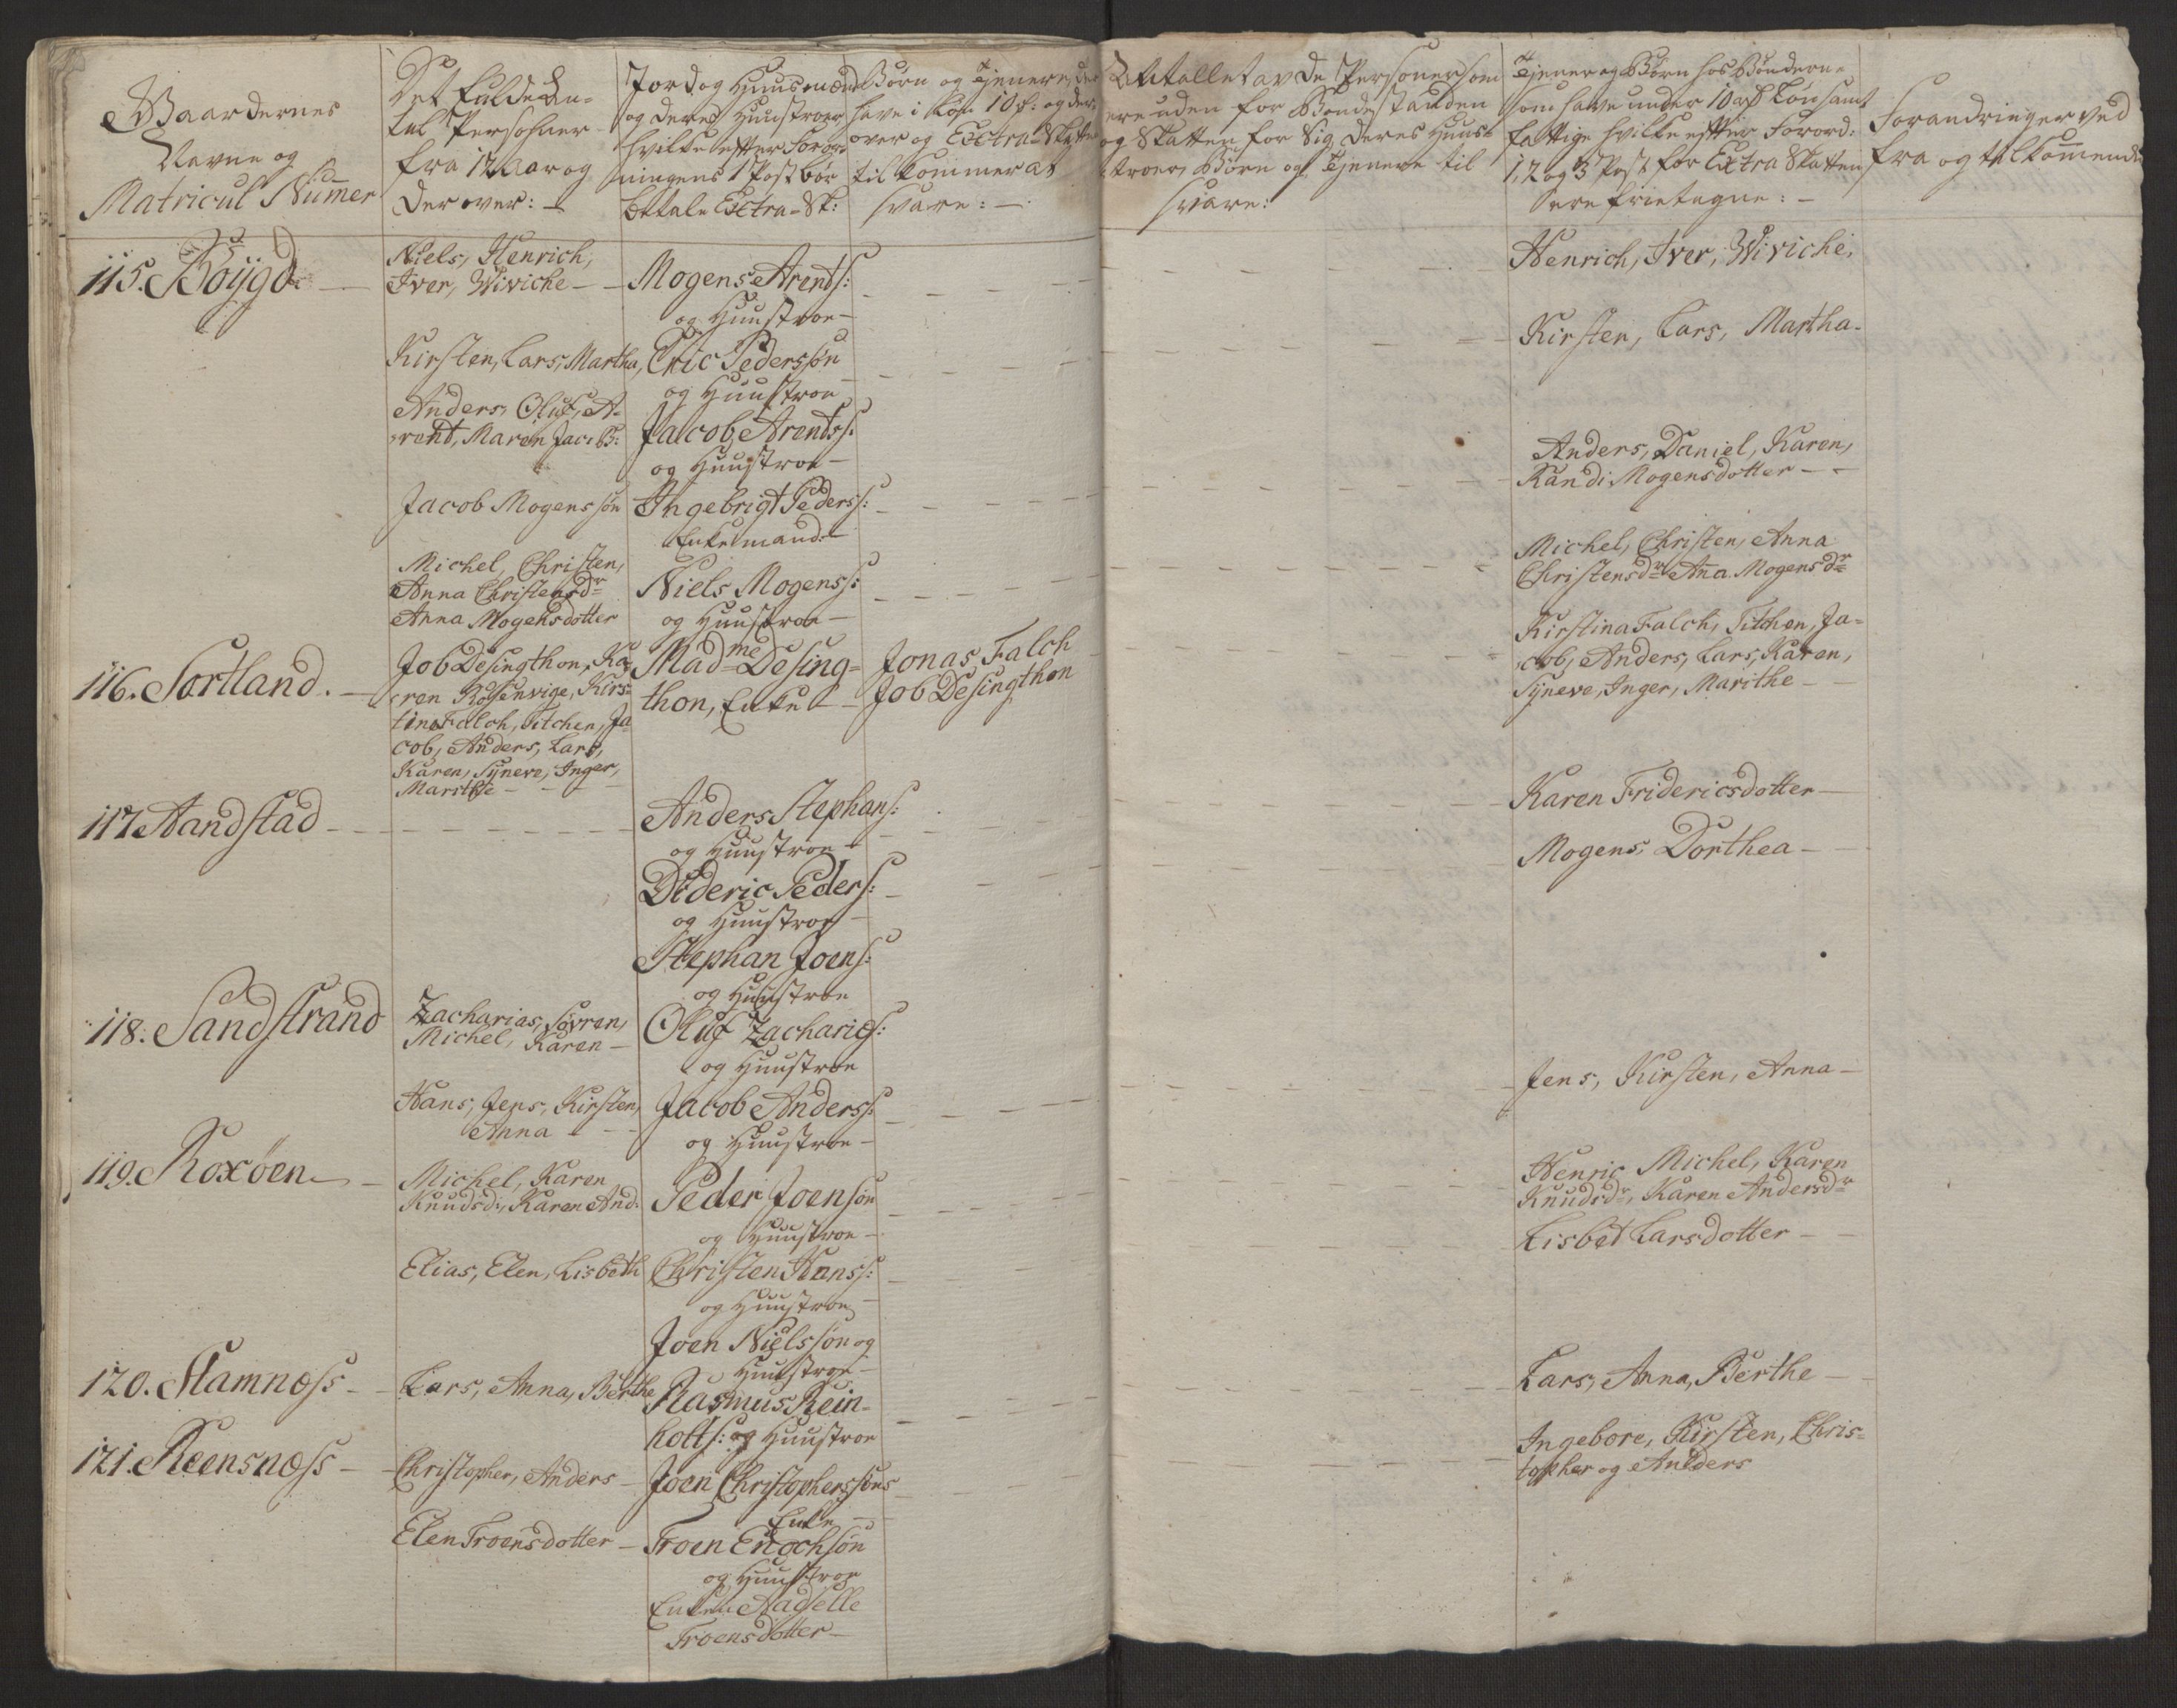 Gaardernes
Navne og
Matricul Numer
Det fulde An-
tal Personer
fra 12 Aar og
der over: –
Jord og Huusmænd
og deres Huustroer
hvilke efter Forord-
ningens 1 Post bør
bettale Extra-Sk:
Børn og Tjenere, der
have i Løn 10 rd: og der-
over og Extra-Skatten
til kommer at
svare: –
Antallet av de Personer som
ere uden for Bondestanden
og Skatten for Sig deres Huus-
troer, Børn og Tjenere til
svare:
Tjener og Børn hos Bønderne
som have under 10 rd Løn samt
fattige hvilke efter Forord:
1, 2 og 3 Post for Extra Skatten
ere frietagne: –
Forandringer ved
fra og tilkommende
115. Böijgd
Niels, Henrich,
Iver, Wiviche – –
Mogens Arents:
og Huustroe –
Henrich, Iver, Wiviche,
Kirsten, Lars, Martha,
Eric Pederssøn
og Huustroe
Kirsten, Lars, Martha –
Anders, Oluf, A-
rent, Maren Jac: B:
Jacob Arentss:
og Huustroe –
Anders, Daniel, Karen,
Randi Mogensdotter – –
Jacob Mogenssøn
Ingebrigt Pederss:
Enkemand –
Michel, Christen,
Anna Christensdr
Anna Mogensdotter
Niels Mogenss:
og Huustroe –
Michel, Christen, Anna
Christensdr Ana Mogensdr
116. Sortland. –
Job Desingthon, Ka-
ren Rosenvige, Kirs-
tina Falch, Titchen, Ja-
cob, Anders, Lars,
Karen, Sÿneve, Inger,
Marithe – – –
Madme Desing-
thon, Enke –
Jonas Falch
Job Desingthon
Kirstina Falch, Titthen, Ja-
cob, Anders, Lars, Karen,
Sÿneve, Inger, Marithe –
117 Aandstad – –
Anders Stephans:
og Huustroe –
Karen Fridericsdotter –
Dideric Peders:
og Huustroe –
Mogens, Dorthea –
Stephan Joens:
og Huustroe
118. Sandstrand
Zacharias, Sövren,
Michel, Karen –
Oluf Zacharies:
og Huustroe
Hans, Jens, Kirsten,
Anna – –
Jacob Anderss:
og Huustroe –
Jens, Kirsten, Anna –
119. Roxöen –
Michel, Karen
Knudsd:, Karen And:
Peder Joensøn
og Huustroe –
Henric Michel, Karen
Knudsdr, Karen Andersdr
Elias, Elen, Lisbeth
Christen Hanss:
og Huustroe
Lisbet Larsdotter –
Joen Nielssøn og
Huustroe –
120. Hamnæss –
Lars, Anna, Berthe
Rasmus Rein-
holts: og Huustroe
Lars, Anna, Berthe –
121. Reensnæss –
Christopher, Anders –
Joen Christopherssøns
Enke –
Ingebore, Kirsten, Chris-
topher og Anders
Elen Troensdotter –
Troen Enochsøn
og Huustroe
Enken Aadselle
Troensdotter –